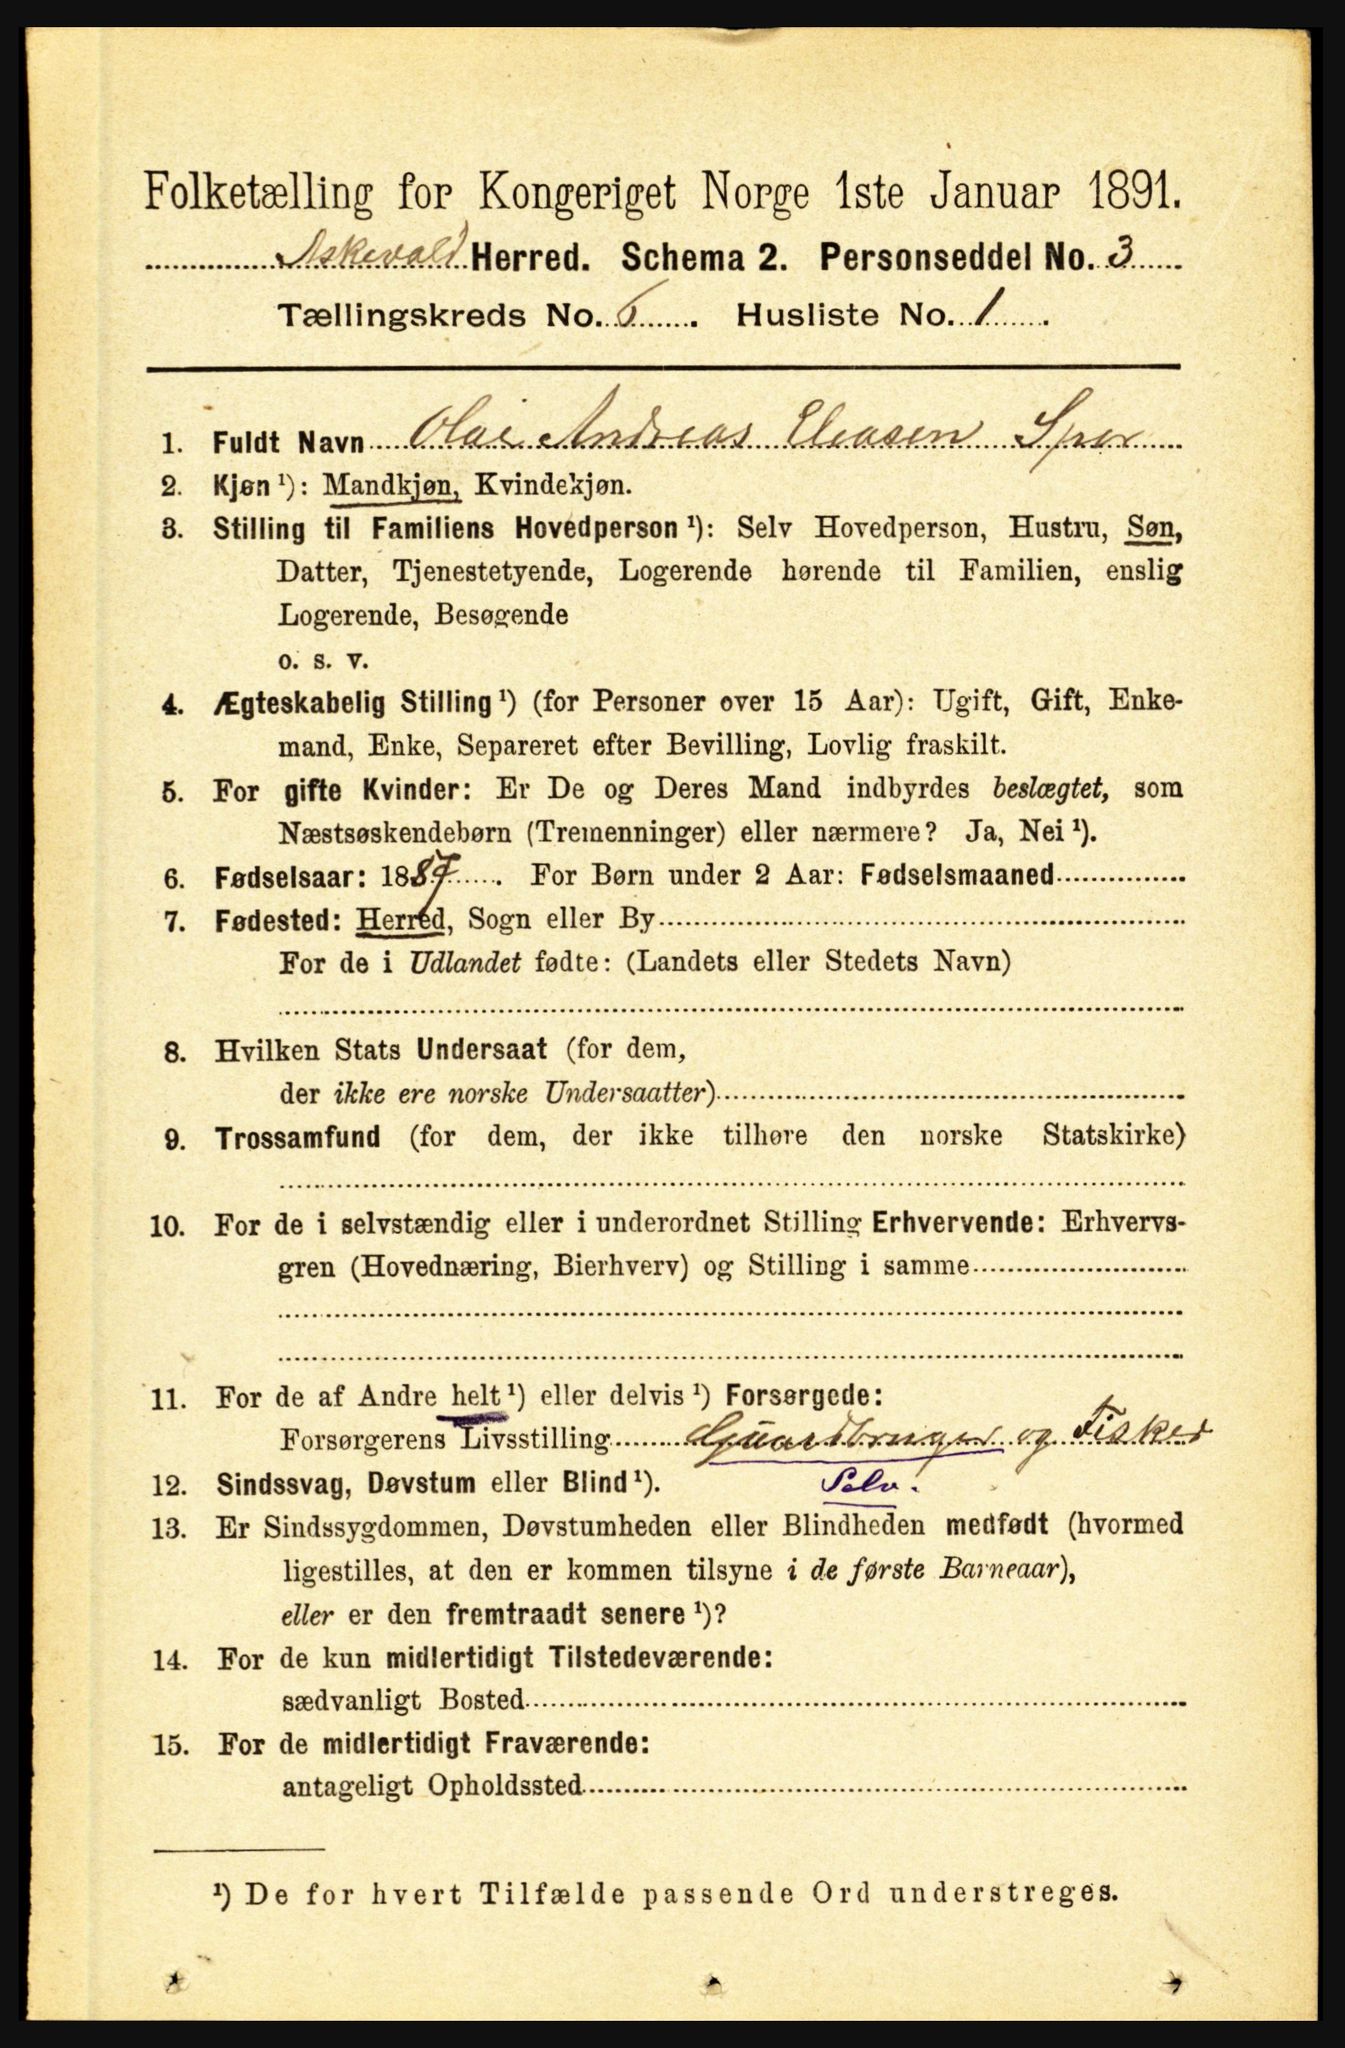 Folketælling for Kongeriget Norge 1ste Januar 1891.
Askevold Herred. Schema 2. Personseddel No. 3
Tællingskreds No. 6. Husliste No. 1.
1. Fuldt Navn Olai Andreas Eliasen
2. Kjøn ¹): Mandkjøn, Kvindekjøn.
3. Stilling til Familiens Hovedperson ¹): Selv Hovedperson, Hustru, Søn,
Datter, Tjenestetyende, Logerende hørende til Familien, enslig
Logerende, Besøgende
o. s. v.
4. Ægteskabelig Stilling ¹) (for Personer over 15 Aar): Ugift, Gift, Enke-
mand, Enke, Separeret efter Bevilling, Lovlig fraskilt.
5. For gifte Kvinder: Er De og Deres Mand indbyrdes beslægtet, som
Næstsøskendebørn (Tremenninger) eller nærmere? Ja, Nei ¹).
6. Fødselsaar: 1887. For Børn under 2 Aar: Fødselsmaaned
7. Fødested: Herred, Sogn eller By
For de i Udlandet fødte: (Landets eller Stedets Navn)
8. Hvilken Stats Undersaat (for dem,
der ikke ere norske Undersaatter)
9. Trossamfund (for dem, der ikke tilhøre den norske Statskirke)
10. For de i selvstændig eller i underordnet Stilling Erhvervende: Erhvervs-
gren (Hovednæring, Bierhverv) og Stilling i samme
11. For de af Andre helt ¹) eller delvis ¹) Forsørgede:
Forsørgerens Livsstilling Gaardbruger og Fisker
12. Sindssvag, Døvstum eller Blind ¹). Selv.
13. Er Sindssygdommen, Døvstumheden eller Blindheden medfødt (hvormed
ligestilles, at den er kommen tilsyne i de første Barneaar),
eller er den fremtraadt senere ¹)?
14. For de kun midlertidigt Tilstedeværende:
sædvanligt Bosted
15. For de midlertidigt Fraværende:
antageligt Opholdssted
¹) De for hvert Tilfælde passende Ord understreges.